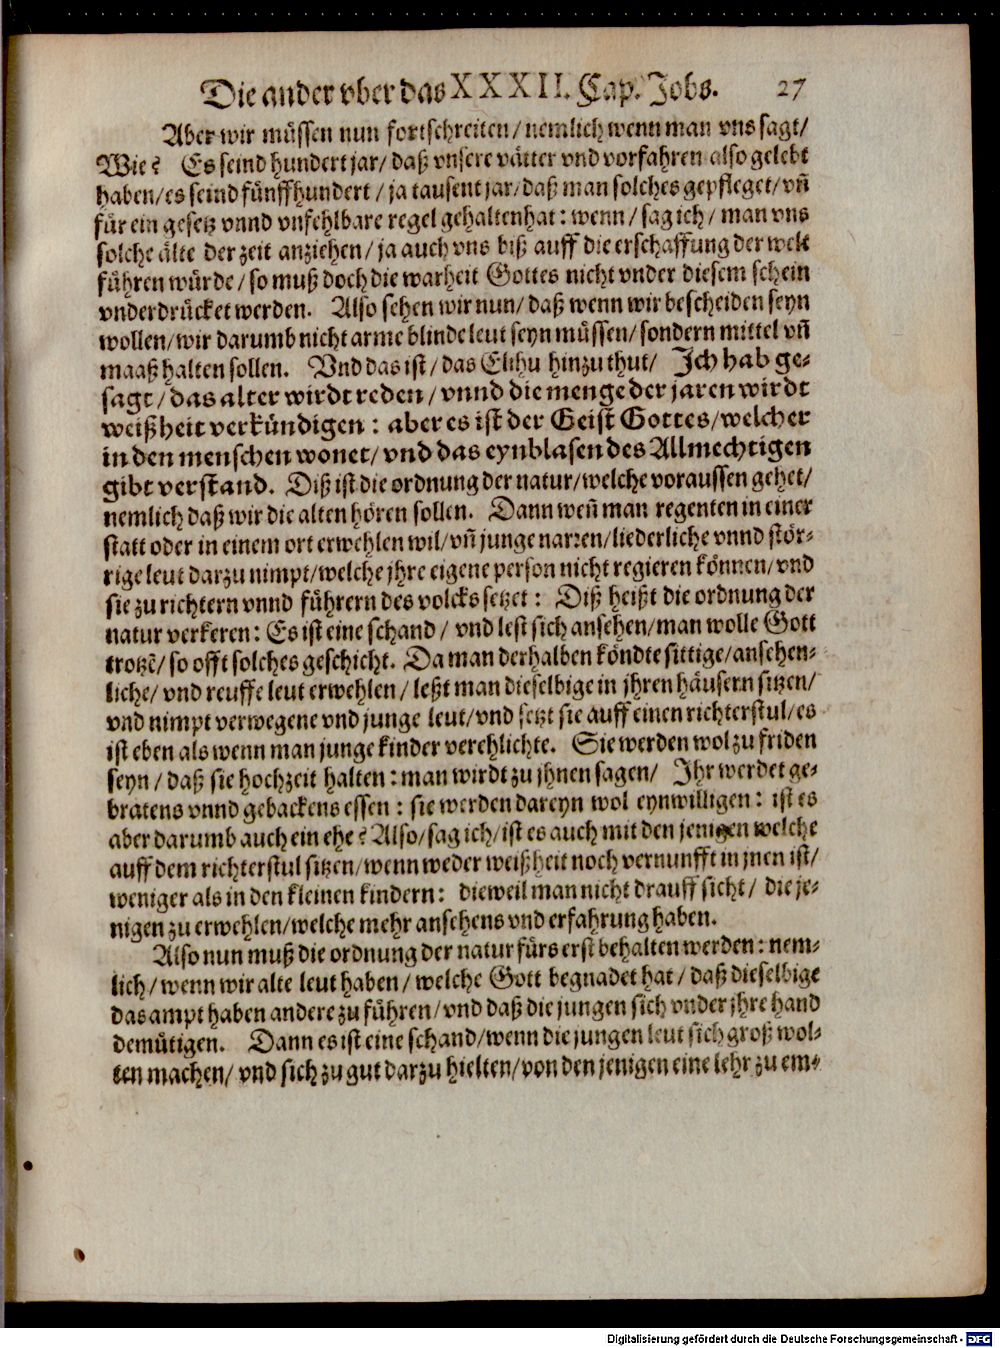 Die ander vber das XXXII. Cap. Jobs. 27
Aber wir müssen nun fortschreiten/ nemlich wenn man vns sagt/
Wie? Es seind hundert jar/ daß vnsere vätter vnd vorfahren also gelebt
haben/ es seind fünffhundert/ ja tausent jar/ daß man solches gepfleget/ vñ
für ein gesetz vnnd vnfehlbare regel gehalten hat: wenn/ sag ich/ man vns
solche älte der zeit anziehen/ ja auch vns biß auff die erschaffung der welt
führen würde/ so muß doch die warheit Gottes nicht vnder diesem schein
vnderdrücket werden. Also sehen wir nun/ daß wenn wir bescheiden seyn
wollen/ wir darumb nicht arme blinde leut seyn müssen/ sondern mittel vñ
maaß halten sollen. Vnd das ist/ das Elihu hinzu thut/ Ich hab ge-
sagt/ das alter wirdt reden/ vnnd die menge der jaren wirdt
weißheit verkündigen: aber es ist der Geist Gottes/ welcher
in den menschen wonet/ vnd das eynblasen des Allmechtigen
gibt verstand. Diß ist die ordnung der natur/ welche voraussen gehet/
nemlich daß wir die alten hören sollen. Dann weñ man regenten in einer
statt oder in einem ort erwehlen wil/ vñ junge narren/ liederliche vnnd stör-
rige leut darzu nimpt/ welche jhre eigene person nicht regieren können/ vnd
sie zu richtern vnnd führern des volcks setzet: Diß heißt die ordnung der
natur verkeren: Es ist eine schand/ vnd lest sich ansehen/ man wolle Gott
trotzẽ/ so offt solches geschicht. Da man derhalben köndte sittige/ ansehen-
liche/ vnd reuffe leut erwehlen/ leßt man dieselbige in jhren häusern sitzen/
vnd nimpt verwegene vnd junge leut/ vnd setzt sie auff einen richterstul/ es
ist eben als wenn man junge kinder verehlichte. Sie werden wol zu friden
seyn/ daß sie hochzeit halten: man wirdt zu jhnen sagen/ Ihr werdet ge-
bratens vnnd gebackens essen: sie werden dareyn wol eynwilligen: ist es
aber darumb auch ein ehe? Also/ sag ich/ ist es auch mit den jenigen welche
auff dem richterstul sitzen/ wenn weder weißheit noch vernunfft in jnen ist/
weniger als in den kleinen kindern: dieweil man nicht drauff sicht/ die je-
nigen zu erwehlen/ welche mehr ansehens vnd erfahrung haben.
Also nun muß die ordnung der natur fürs erst behalten werden: nem-
lich/ wenn wir alte leut haben/ welche Gott begnadet hat/ daß dieselbige
das ampt haben andere zu führen/ vnd daß die jungen sich vnder jhre hand
demütigen. Dann es ist eine schand/ wenn die jungen leut sich groß wol-
ten machen/ vnd sich zu gut darzu hielten/ von den jenigen eine lehr zu em-
Digitalisierung gefördert durch die Deutsche Forschungsgemeinschaft - DFG